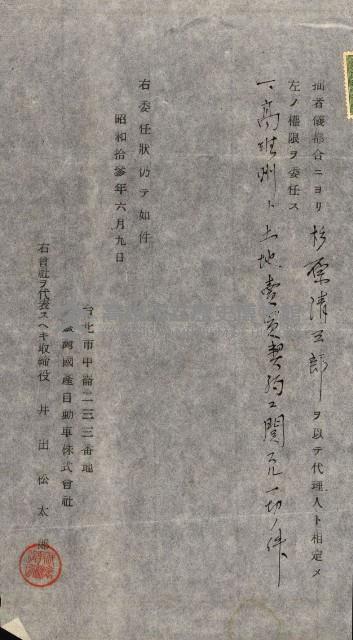 拙者儀都合ニヨリ杉原清三郎ヲ以テ代理人ト相定メ
左ノ權限ヲ委任ス
一、高雄州ト土地賣買契約ニ關スル一切ノ件
右委任狀仍テ如件
昭和拾參年六月九日
台北市中崙二三三番地
臺灣國產自動車株式會社
右會社ヲ代表スヘキ取締役 井出松太郎